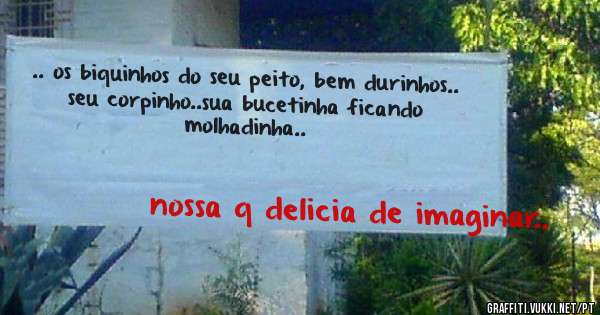 .. os biquinhos do seu peito, bem durinhos..
seu corpinho..sua bucetinha ficando
molhadinha..
nossa q delicia de imaginar..
GRAFFITI.VUKKI.NET/PT